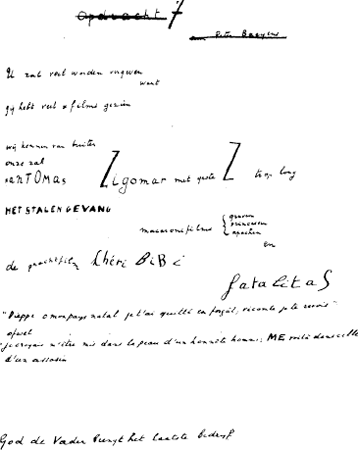 Opdracht 7
U zal veel worden vergeven
want
gij hebt veel films gezien
wij kennen van buiten
onze zal
FANTOMas Zigomar met geste Z
HET STALEN GEVANG
macaronifilms { graven
prinsessen
apachen
en
de prachtfilm Chéri BiBi
fatalitaS
"Dieppe o mon pays natal je t'ai quitté en forçat, vicomte je te revois"
ofwel
"je croyais m'être mis dans la peau d'un honnête homme; ME voilà dans celle
d'un assassin
God de Vader het laatste Bedrijf